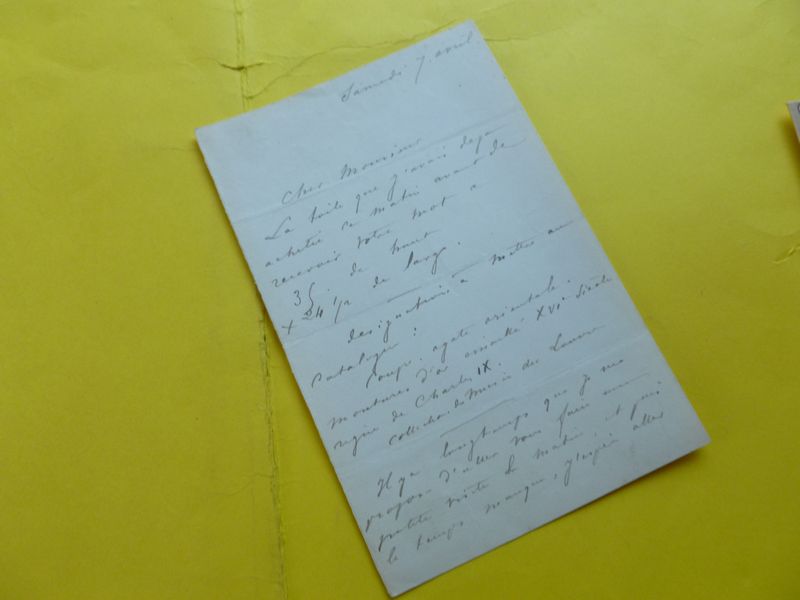 Samedi 7 avril.
Cher Monsieur
La toile que j'avais deja
achetée ce matin avant de
recevoir votre mot a
35. de haut
+ 24 1/2 de large.
designation à mettre au
catalogue :
Coupe, agate orientale.
montures d'or émaillé XVIe siècle
regne de Charles IX.
collection du Musée du Louvre
Il y a longtemps que je me
propose d'aller vous faire une
petite visite le matin, et puis
le temps manque, j'espère aller